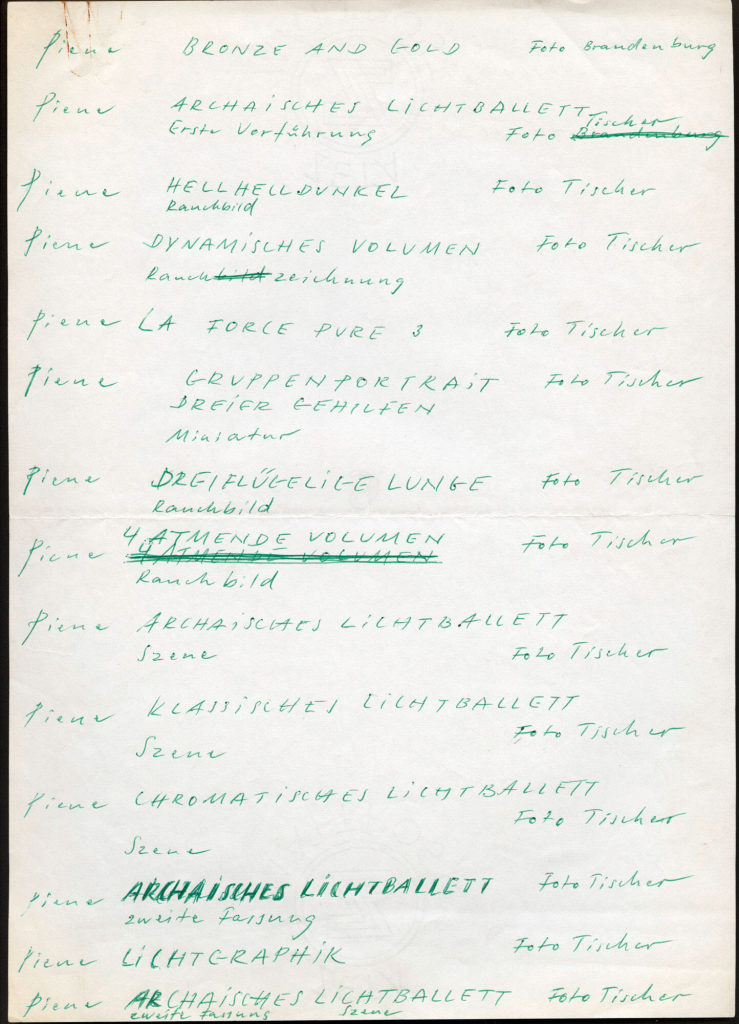 Piene BRONZE AND GOLD Foto Brandenburg
Piene ARCHAISCHES LICHTBALLETT
Erste Vorführung Foto Brandenburg Tischer
Piene HELLHELLDUNKEL Foto Tischer
Rauchbild
Piene DYNAMISCHES VOLUMEN Foto Tischer
Rauchbildzeichnung
Piene LA FORCE PURE 3 Foto Tischer
Piene GRUPPENPORTRAIT Foto Tischer
DREIER GEHILFEN
Miniatur
Piene DREIFLÜGELIGE LUNGE Foto Tischer
Rauchbild
4 ATMENDE VOLUMEN
Piene 4 ATMENDE VOLUMEN Foto Tischer
Rauchbild
Piene ARCHAISCHES LICHTBALLETT
Szene Foto Tischer
Piene KLASSISCHES LICHTBALLETT
Foto Tischer
Szene
Piene CHROMATISCHES LICHTBALLETT
Foto Tischer
Szene
Piene ARCHAISCHES LICHTBALLETT Foto Tischer
zweite Fassung
Piene LICHTGRAPHIK Foto Tischer
Piene ARCHAISCHES LICHTBALLETT Foto Tischer
zweite Fassung Szene